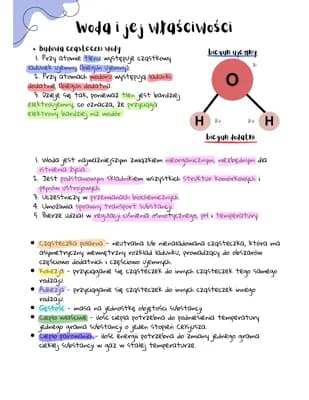 Woda i jej właściwości
• budowa cząsteczki wody
1. Przy atomie tlenu występuje cząstkowy
ładunek ujemny (biegun ujemny).
2. Przy atomach wodoru występują ładunki
dodatnie (biegun dodatni)
3. Dzieje się tak, ponieważ tlen jest bardziej
elektroujemny, co oznacza, że przyciąga
elektrony bardziej niż wodór
biegun ujemny
O
H
H
biegun dodatni
1. Woda jest najważniejszym związkiem nieorganicznym, niezbędnym dla
istnienia życia.
2. Jest podstawowym składnikiem wszystkich struktur komórkowych i
płynów ustrojowych.
3. Uczestniczy w przemianach biochemicznych.
4. Umożliwia sprawny transport substancji.
5. Bierze udział w regulacji ciśnienia osmotycznego, pH i temperatury
• Cząsteczka polarna - neutralna lub nienaładowana cząsteczka, która ma
asymetryczny wewnętrzny rozkład ładunku, prowadzący do obszarów
częściowo dodatnich i częściowo ujemnych.
• Kohezja - przyciąganie się cząsteczek do innych cząsteczek tego samego
rodzaju.
• Adhezja - przyciąganie się cząsteczek do innych cząsteczek innego
rodzaju.
• Gęstość - masa na jednostkę objętości substancji.
• Ciepło właściwe - ilość ciepła potrzebna do podniesienia temperatury
jednego grama substancji o jeden stopień Celsjusza.
• Ciepło parowania - ilość energii potrzebna do zmiany jednego grama
ciekłej substancji w gaz w stałej temperaturze.